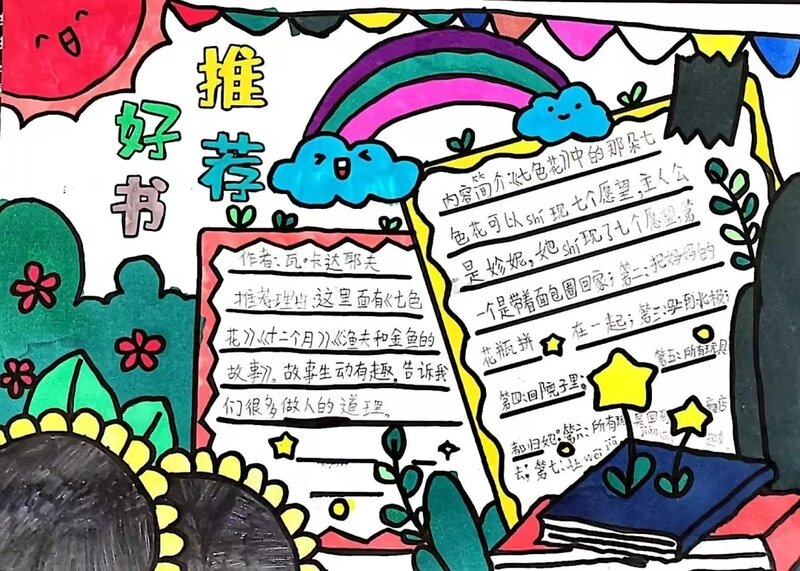 推荐
好书
作者:瓦·卡达耶夫
推荐理由:这里面有《七色
花》、《十二个月》、《渔夫和金鱼的
故事》。故事生动有趣,告诉我
们很多做人的道理。
内容简介:《七色花》中的那朵七
色花可以shí现七个愿望,主人公
是妳妮,她shí现了七个愿望:第
一个是带着面包圈回家;第二:把妈妈的
花瓶拼 在一起;第三:到北极;
第四:回院子里; 第五:所有玩具
都归她;第六:所有
去;第七:让wéi jiā